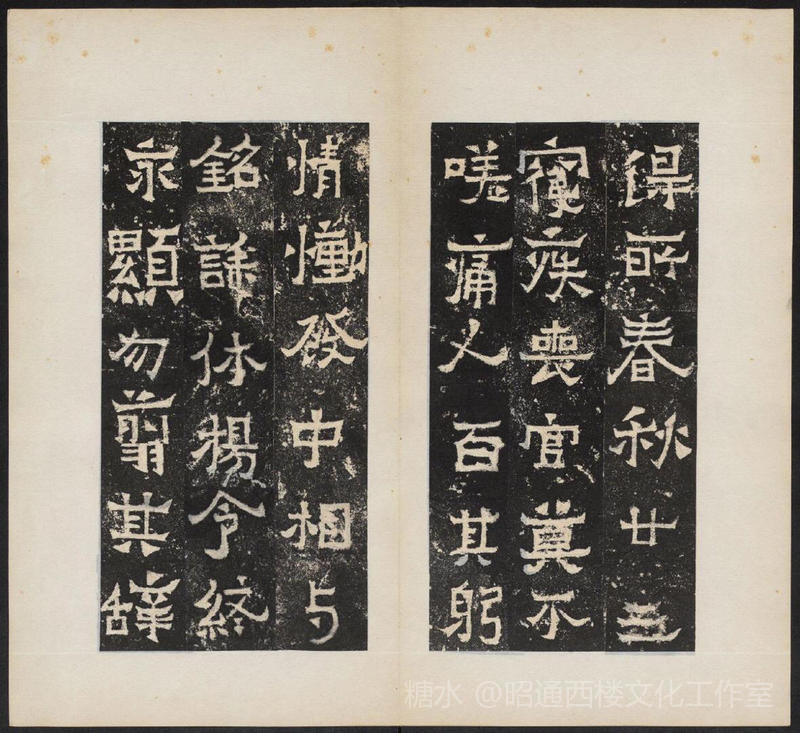 得所春秋廿三
寢疾喪官莫不
嗟痛人百其躬
情慟發中相与
銘誄休揚令終
永顯勿翦其辞
糖水 @昭通西楼文化工作室